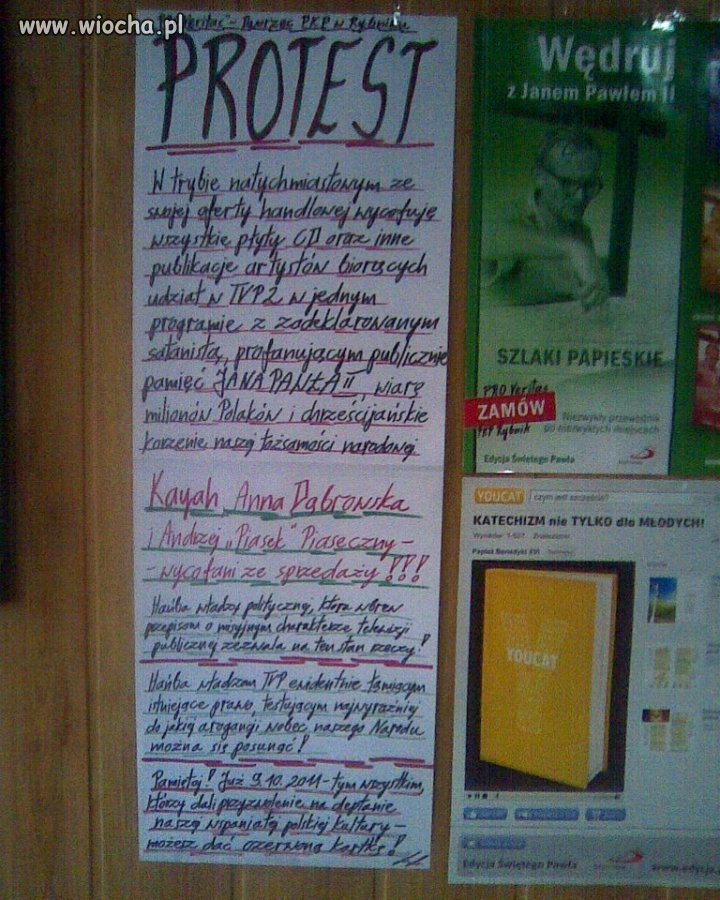 www.wiocha.pl
"Pro Veritas" - Dworzec PKP w Rybniku
PROTEST
W trybie natychmiastowym ze
swojej oferty handlowej wycofuję
wszystkie płyty CD oraz inne
publikacje artystów biorących
udział w TVP2 w jednym
programie z zadeklarowanym
satanistą, profanującym publicznie
pamięć JANA PAWŁA II, wiarę
milionów Polaków i chrześcijańskie
korzenie naszej tożsamości narodowej
Kayah, Anna Dąbrowska
i Andrzej "Piasek" Piaseczny -
- wycofani ze sprzedaży!!!
Hańba władzy politycznej, która wbrew
przepisom o misyjnym charakterze telewizji
publicznej zezwala na ten stan rzeczy!
Hańba władzom TVP ewidentnie łamiącym
istniejące prawo, testującym najwyraźniej
do jakiej arogancji wobec naszego Narodu
można się posunąć!
Pamiętaj! Już 9.10.2011 - tym wszystkim,
którzy dali przyzwolenie na deptanie
naszej wspaniałej polskiej kultury -
możesz dać czerwoną kartkę!
Wędruj
z Janem Pawłem II
SZLAKI PAPIESKIE
PRO Veritas
ZAMÓW
PKP Rybnik
Niezwykły przewodnik
po niezwykłych miejscach
Edycja Świętego Pawła
YOUCAT
czym jest szczęście?
KATECHIZM nie TYLKO dla MŁODYCH!
Papież Benedykt XVI
YOUCAT
Edycja Świętego Pawła
www.edycja.